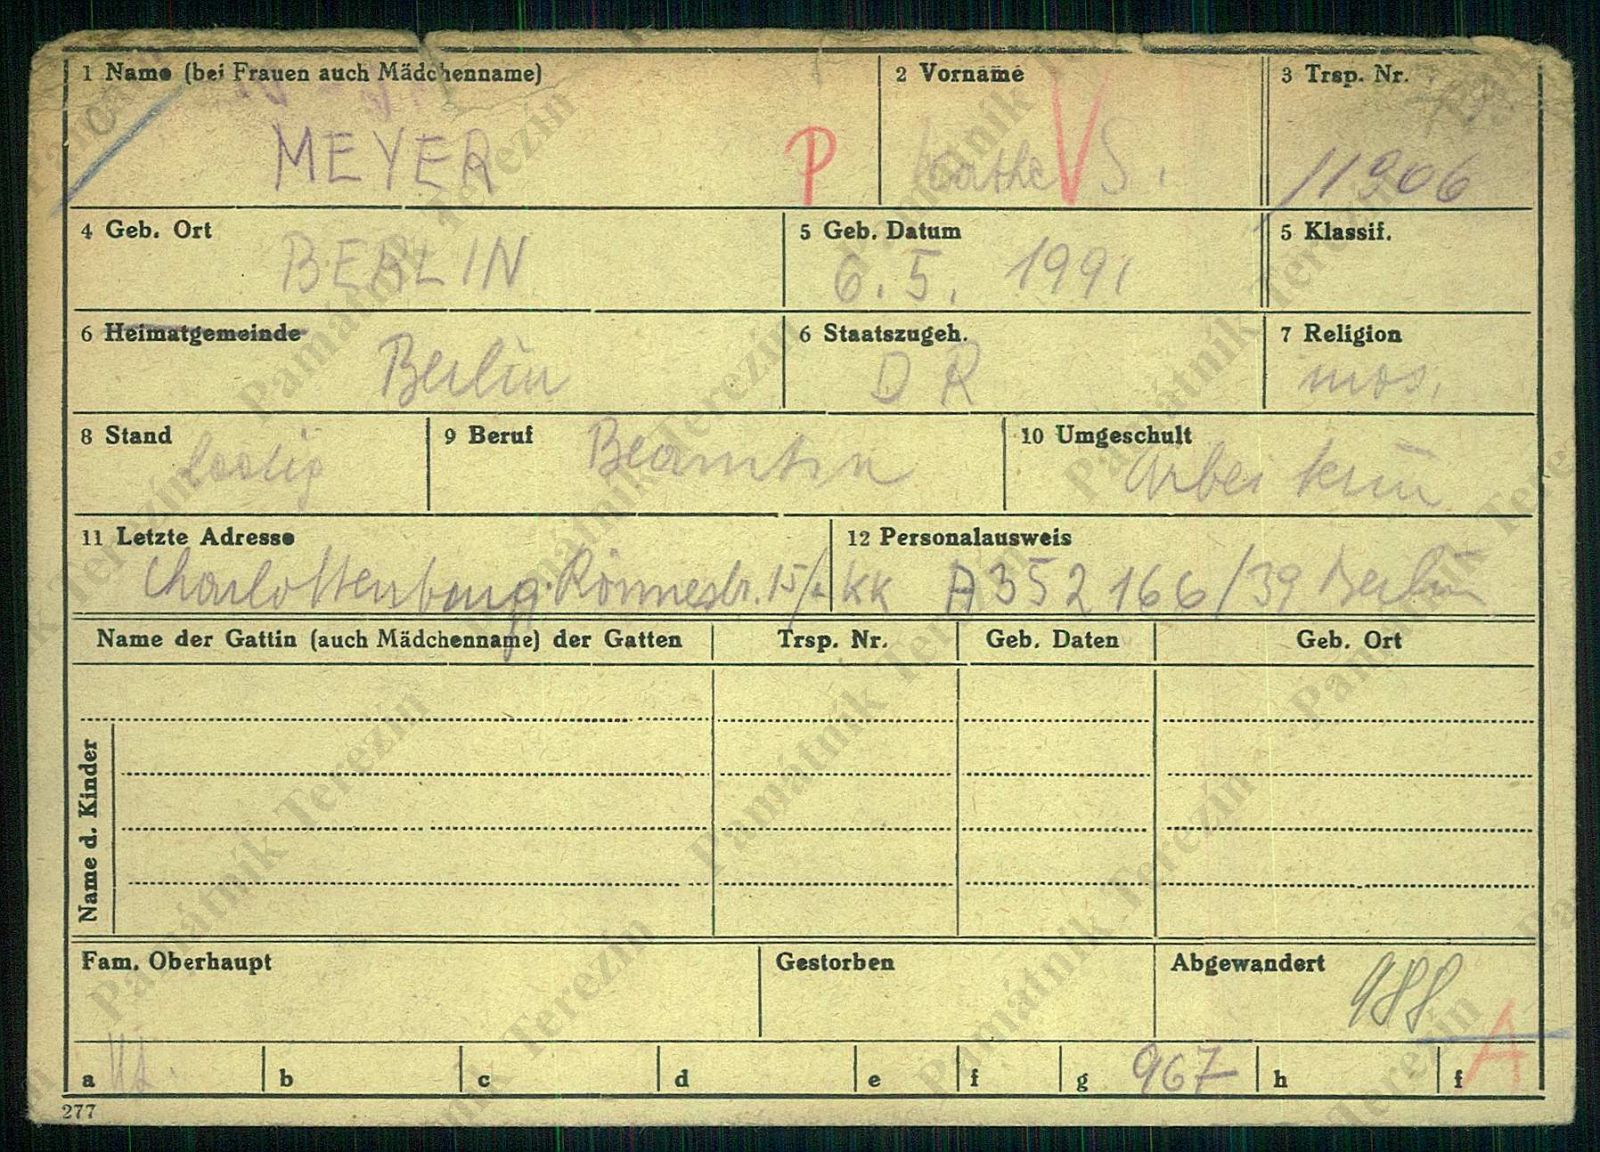 1 Name (bei Frauen auch Mädchenname)
MEYER P
2 Vorname
Käthe V S.
3 Trsp. Nr.
11906
4 Geb. Ort
BERLIN
5 Geb. Datum
6. 5. 1991
5 Klassif.
6 Heimatgemeinde
Berlin
6 Staatszugeh.
D R
7 Religion
mos.
8 Stand
ledig
9 Beruf
Beamtin
10 Umgeschult
Arbeiterin
11 Letzte Adresse
Charlottenburg. Rönnestr. 15/
12 Personalausweis
KK A352166/39 Berlin
Name der Gattin (auch Mädchenname) der Gatten
Trsp. Nr.
Geb. Daten
Geb. Ort
Name d. Kinder
Fam. Oberhaupt
Gestorben
Abgewandert
988
A
a
b
c
d
e
f
g 967
h
f
277
Památník Terezín